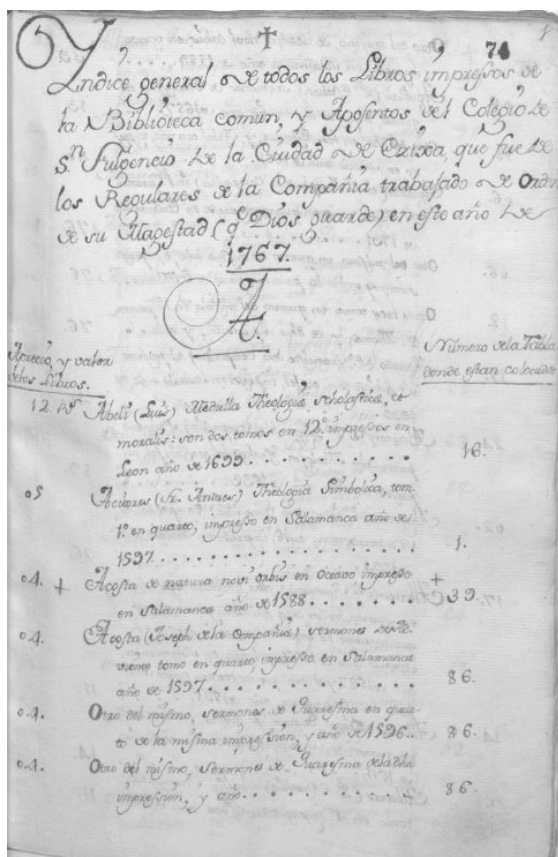 ✝
1
74
Yndice general de todos los Libros impressos de
la Biblioteca comun, y Aposentos del Colegio de
Sn. Fulgencio de la Ciudad de
que fue de
los Regulares de la Compañia trabajado de Orden
de su Magestad (qe. Dios guarde) en este año de
1767.
A.
Aprecio, y valor
de los Libros.
Número de la Tabla
donde estan colocados
12. rs. Abeli (Luis) Medulla Theologiæ scholasticæ, et
moralis: son dos tomos en 12.º impressos en
Leon año de 1699. 16.
05 (Fr. Andres) Theologia Simbolica, tom.
1.º en quarto, impresso en Salamanca año de
1597. 1.
04. + Acosta de natura novi orbis en Octavo impresso
en Salamanca año de 1588. + 39.
04. Acosta (Joseph de la Compañia) sermones de Ad-
viento tomo en quarto, impresso en Salamanca
año de 1597. 86.
04. Otro del mismo, sermones de Quaresma en quar-
to de la misma impression, y año de 1596. 86.
04. Otro del mismo, sermones de Quaresma de la dha
impression, y año. 86.